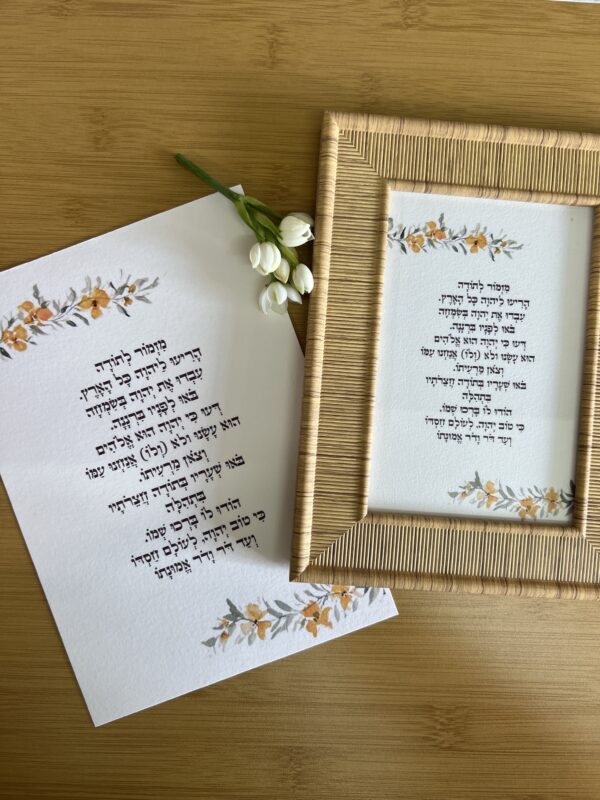 מִזְמוֹר לְתוֹדָה
הָרִיעוּ לַיהוָה כָּל הָאָרֶץ.
עִבְדוּ אֶת יְהוָה בְּשִׂמְחָה
בֹּאוּ לְפָנָיו בִּרְנָנָה.
דְּעוּ כִּי יְהוָה הוּא אֱלֹהִים
הוּא עָשָׂנוּ וּלֹא (וְלוֹ) אֲנַחְנוּ עַמּוֹ
וְצֹאן מַרְעִיתוֹ.
בֹּאוּ שְׁעָרָיו בְּתוֹדָה חֲצֵרֹתָיו
בִּתְהִלָּה
הוֹדוּ לוֹ בָּרְכוּ שְׁמוֹ.
כִּי טוֹב יְהוָה, לְעוֹלָם חַסְדּוֹ
וְעַד דֹּר וָדֹר אֱמוּנָתוֹ
מִזְמוֹר לְתוֹדָה
הָרִיעוּ לַיהוָה כָּל הָאָרֶץ.
עִבְדוּ אֶת יְהוָה בְּשִׂמְחָה
בֹּאוּ לְפָנָיו בִּרְנָנָה.
דְּעוּ כִּי יְהוָה הוּא אֱלֹהִים
הוּא עָשָׂנוּ וּלֹא (וְלוֹ) אֲנַחְנוּ עַמּוֹ
וְצֹאן מַרְעִיתוֹ.
בֹּאוּ שְׁעָרָיו בְּתוֹדָה חֲצֵרֹתָיו
בִּתְהִלָּה
הוֹדוּ לוֹ בָּרְכוּ שְׁמוֹ.
כִּי טוֹב יְהוָה, לְעוֹלָם חַסְדּוֹ
וְעַד דֹּר וָדֹר אֱמוּנָתוֹ